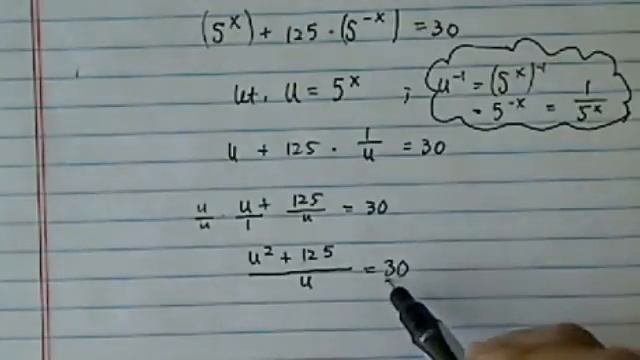 (5^x) + 125 · (5^-x) = 30
let, u = 5^x ; u^-1 = (5^x)^-1
= 5^-x = 1/5^x
u + 125 · 1/u = 30
u/u · u/1 + 125/u = 30
(u² + 125)/u = 30